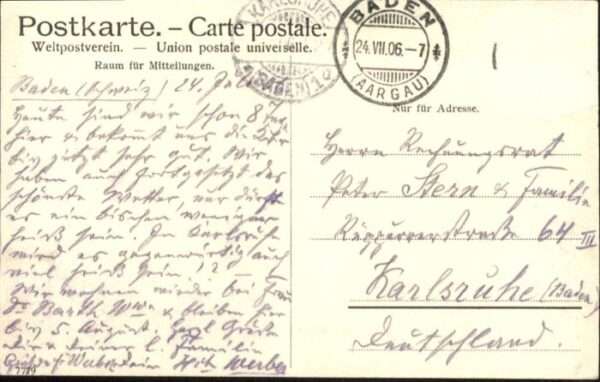 Postkarte. – Carte postale.
Weltpostverein. — Union postale universelle.
Raum für Mitteilungen.
Nur für Adresse.
KARLSRUHE
(BADEN) 1
BADEN
24.VII.06.–7
(AARGAU)
Baden (Schweiz) 24. Juli
Heute sind wir schon 8 Tage
hier & bekommt uns die Kur
bis jetzt sehr gut. Wir
haben auch fortgesetzt das
schönste Wetter, nur dürft
es ein bischen weniger
heiß sein. In Karlsruhe
wird es gegenwärtig auch
viel heiß sein! ? –
Wir wohnen wieder bei Frau
Dr Barth Wwe & bleiben hier
bis 5. August. Grüße
& deiner l. Familie
Weber
Herrn Rechnungsrat
Peter Stern & Familie
Rüppurrerstraße 64 III
Karlsruhe (Baden)
Deutschland.
7719